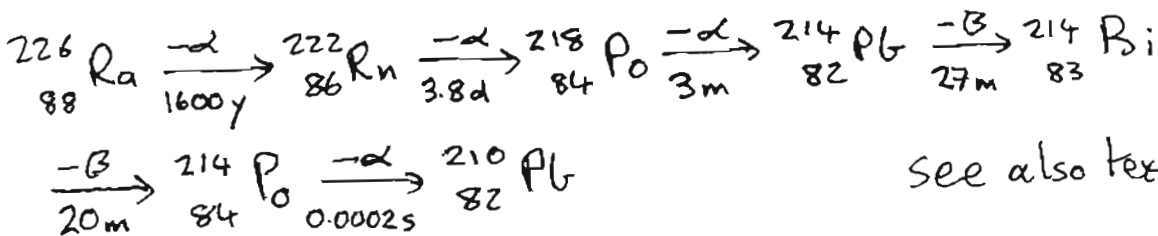 ²²⁶₈₈Ra —-α/1600y→ ²²²₈₆Rn —-α/3.8d→ ²¹⁸₈₄Po —-α/3m→ ²¹⁴₈₂Pb —-β/27m→ ²¹⁴₈₃Bi
—-β/20m→ ²¹⁴₈₄Po —-α/0.0002s→ ²¹⁰₈₂Pb see also tex